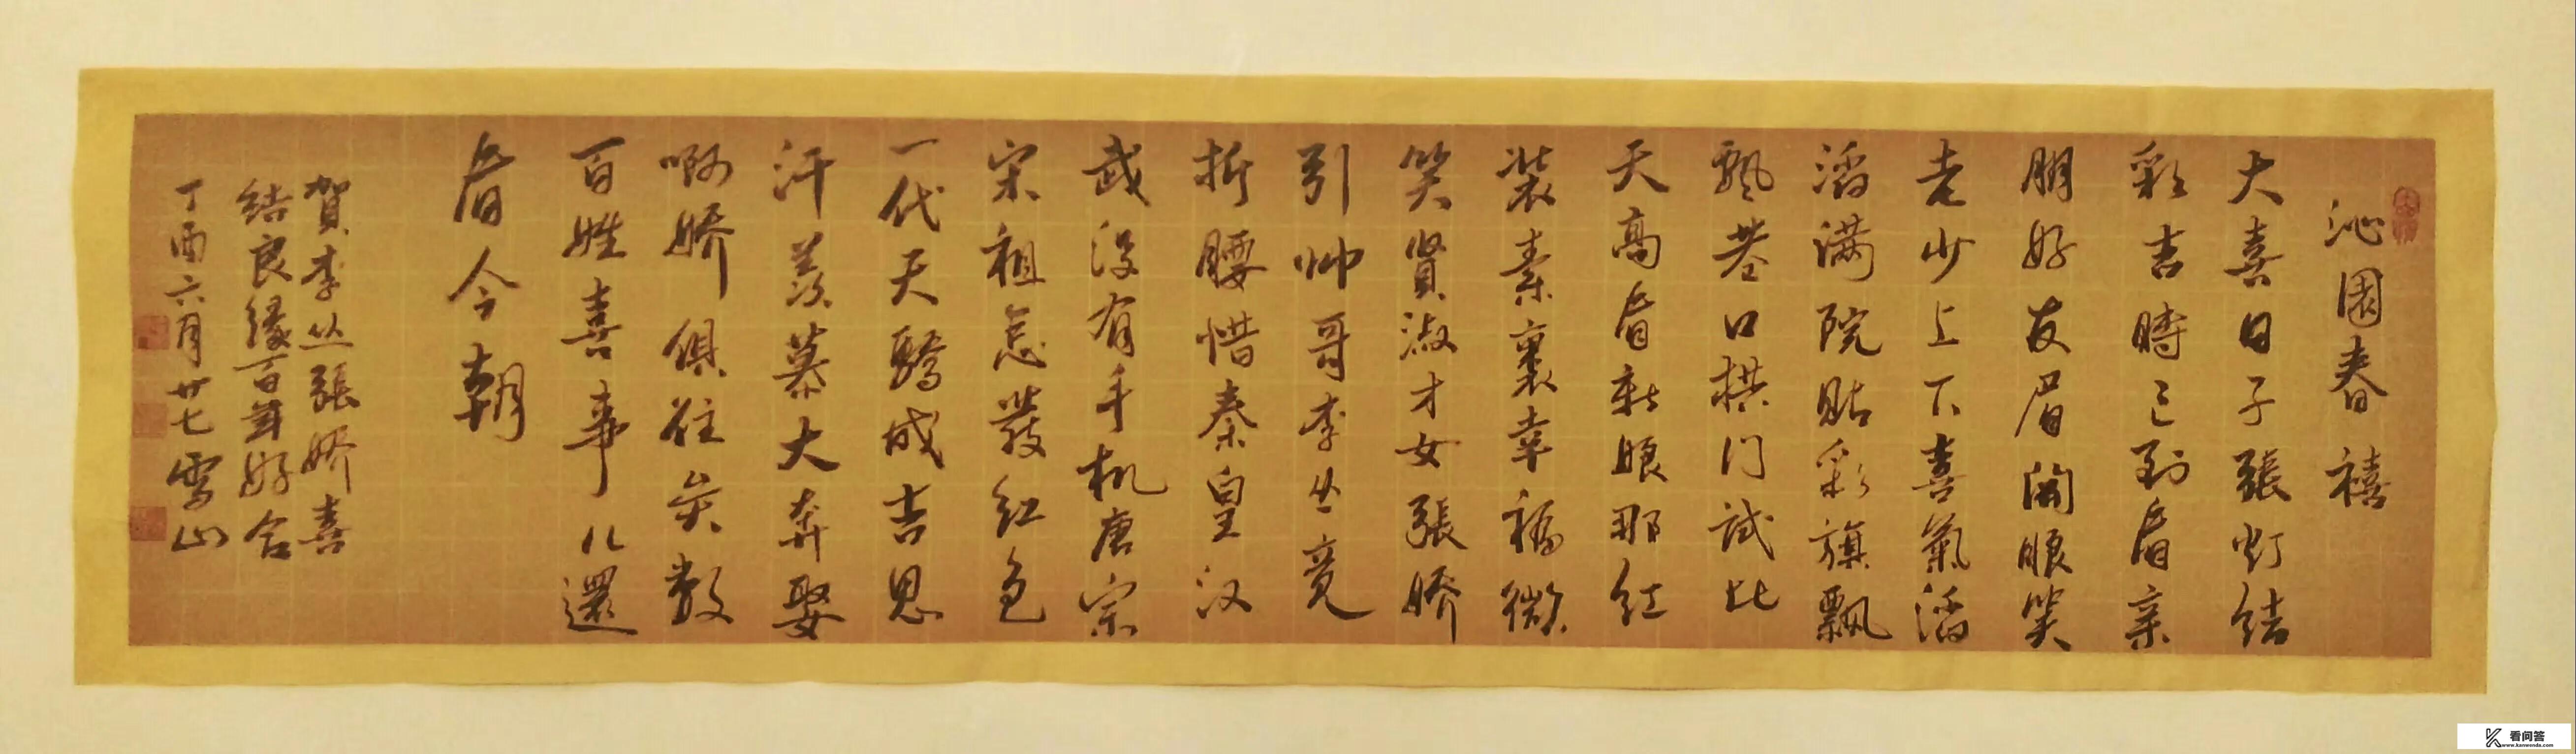 沁園春 禧
大喜日子張灯結
彩吉時已到看亲
朋好友眉開眼笑
老少上下喜氣滔
滔满院貼彩旗飘
飘巷口拱门試比
天高看新娘那红
装素裹幸福微
笑賢淑才女張娇
引帅哥李丛竟
折腰惜秦皇汉
武没有手机唐宗
宋祖怎發红色
一代天驕成吉思
汗羡慕大奔娶
啊娇俱往矣数
百姓喜事儿還
看今朝
賀李丛張娇喜
结良缘百年好合
丁酉六月廿七雪山
看问答
www.kanwenda.com